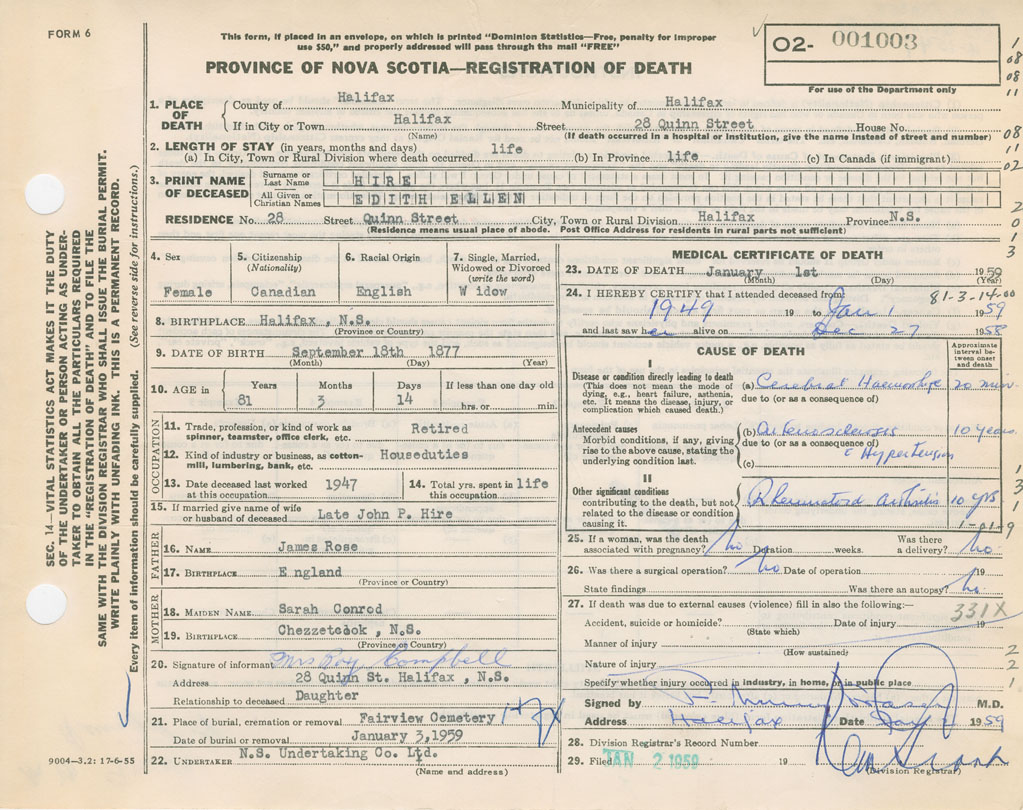 FORM 6
This form, if placed in an envelope, on which is printed "Dominion Statistics—Free, penalty for improper
use $50," and properly addressed will pass through the mail "FREE"
PROVINCE OF NOVA SCOTIA—REGISTRATION OF DEATH
O2- 001003
For use of the Department only
1. PLACE OF DEATH
County of Halifax Municipality of Halifax
If in City or Town Halifax Street 28 Quinn Street House No.
(Name) (If death occurred in a hospital or institution, give the name instead of street and number)
2. LENGTH OF STAY (in years, months and days)
(a) In City, Town or Rural Division where death occurred life (b) In Province life (c) In Canada (if immigrant)
3. PRINT NAME OF DECEASED
Surname or Last Name HIRE
All Given or Christian Names EDITH ELLEN
RESIDENCE No. 28 Street Quinn Street City, Town or Rural Division Halifax Province N.S.
(Residence means usual place of abode. Post Office Address for residents in rural parts not sufficient)
4. Sex
Female
5. Citizenship
(Nationality)
Canadian
6. Racial Origin
English
7. Single, Married,
Widowed or Divorced
(write the word)
W idow
8. BIRTHPLACE Halifax , N.S.
(Province or Country)
9. DATE OF BIRTH September 18th 1877
(Month) (Day) (Year)
10. AGE in Years Months Days If less than one day old
81 3 14 hrs. or min.
OCCUPATION
11. Trade, profession, or kind of work as
spinner, teamster, office clerk, etc. Retired
12. Kind of industry or business, as cotton-
mill, lumbering, bank, etc. Houseduties
13. Date deceased last worked
at this occupation 1947
14. Total yrs. spent in
this occupation life
15. If married give name of wife
or husband of deceased Late John P. Hire
FATHER
16. NAME James Rose
17. BIRTHPLACE E ngland
(Province or Country)
MOTHER
18. MAIDEN NAME Sarah Conrod
19. BIRTHPLACE Chezzetcook , N.S.
(Province or Country)
20. Signature of informant Mrs Roy Campbell
Address 28 Quinn St. Halifax , N.S.
Relationship to deceased Daughter
21. Place of burial, cremation or removal Fairview Cemetery
Date of burial or removal January 3,1959
22. UNDERTAKER N.S. Undertaking Co. Ltd.
(Name and address)
MEDICAL CERTIFICATE OF DEATH
23. DATE OF DEATH January 1st 1959
(Month) (Day) (Year)
81-3-14-00
24. I HEREBY CERTIFY that I attended deceased from
1949 19 to Jan 1 1959
and last saw her alive on Dec 27 1958
CAUSE OF DEATH
Approximate interval between onset and death
I
Disease or condition directly leading to death
(This does not mean the mode of
dying, e.g., heart failure, asthenia,
etc. It means the disease, injury, or
complication which caused death.)
(a) Cerebral Haemorrhage 20 min
due to (or as a consequence of)
Antecedent causes
Morbid conditions, if any, giving
rise to the above cause, stating the
underlying condition last.
(b) Arteriosclerosis 10 years
due to (or as a consequence of)
c Hypertension
(c)
II
Other significant conditions
contributing to the death, but not
related to the disease or condition
causing it.
Rheumatoid arthritis 10 yrs
25. If a woman, was the death
associated with pregnancy? No Duration weeks. Was there
a delivery? No
26. Was there a surgical operation? No Date of operation 19
State findings Was there an autopsy? No
27. If death was due to external causes (violence) fill in also the following:—
331X
Accident, suicide or homicide? Date of injury 19
(State which)
Manner of injury
(How sustained)
Nature of injury
Specify whether injury occurred in industry, in home, in public place
Signed by M.D.
Address Halifax Date Jan 2 1959
28. Division Registrar's Record Number
29. Filed JAN 2 1959 19
(Division Registrar)
SEC. 14—VITAL STATISTICS ACT MAKES IT THE DUTY
OF THE UNDERTAKER OR PERSON ACTING AS UNDER-
TAKER TO OBTAIN ALL THE PARTICULARS REQUIRED
IN THE "REGISTRATION OF DEATH" AND TO FILE THE
SAME WITH THE DIVISION REGISTRAR WHO SHALL ISSUE THE BURIAL PERMIT.
WRITE PLAINLY WITH UNFADING INK. THIS IS A PERMANENT RECORD.
Every item of information should be carefully supplied. (See reverse side for instructions.)
9004—3.2: 17-6-55